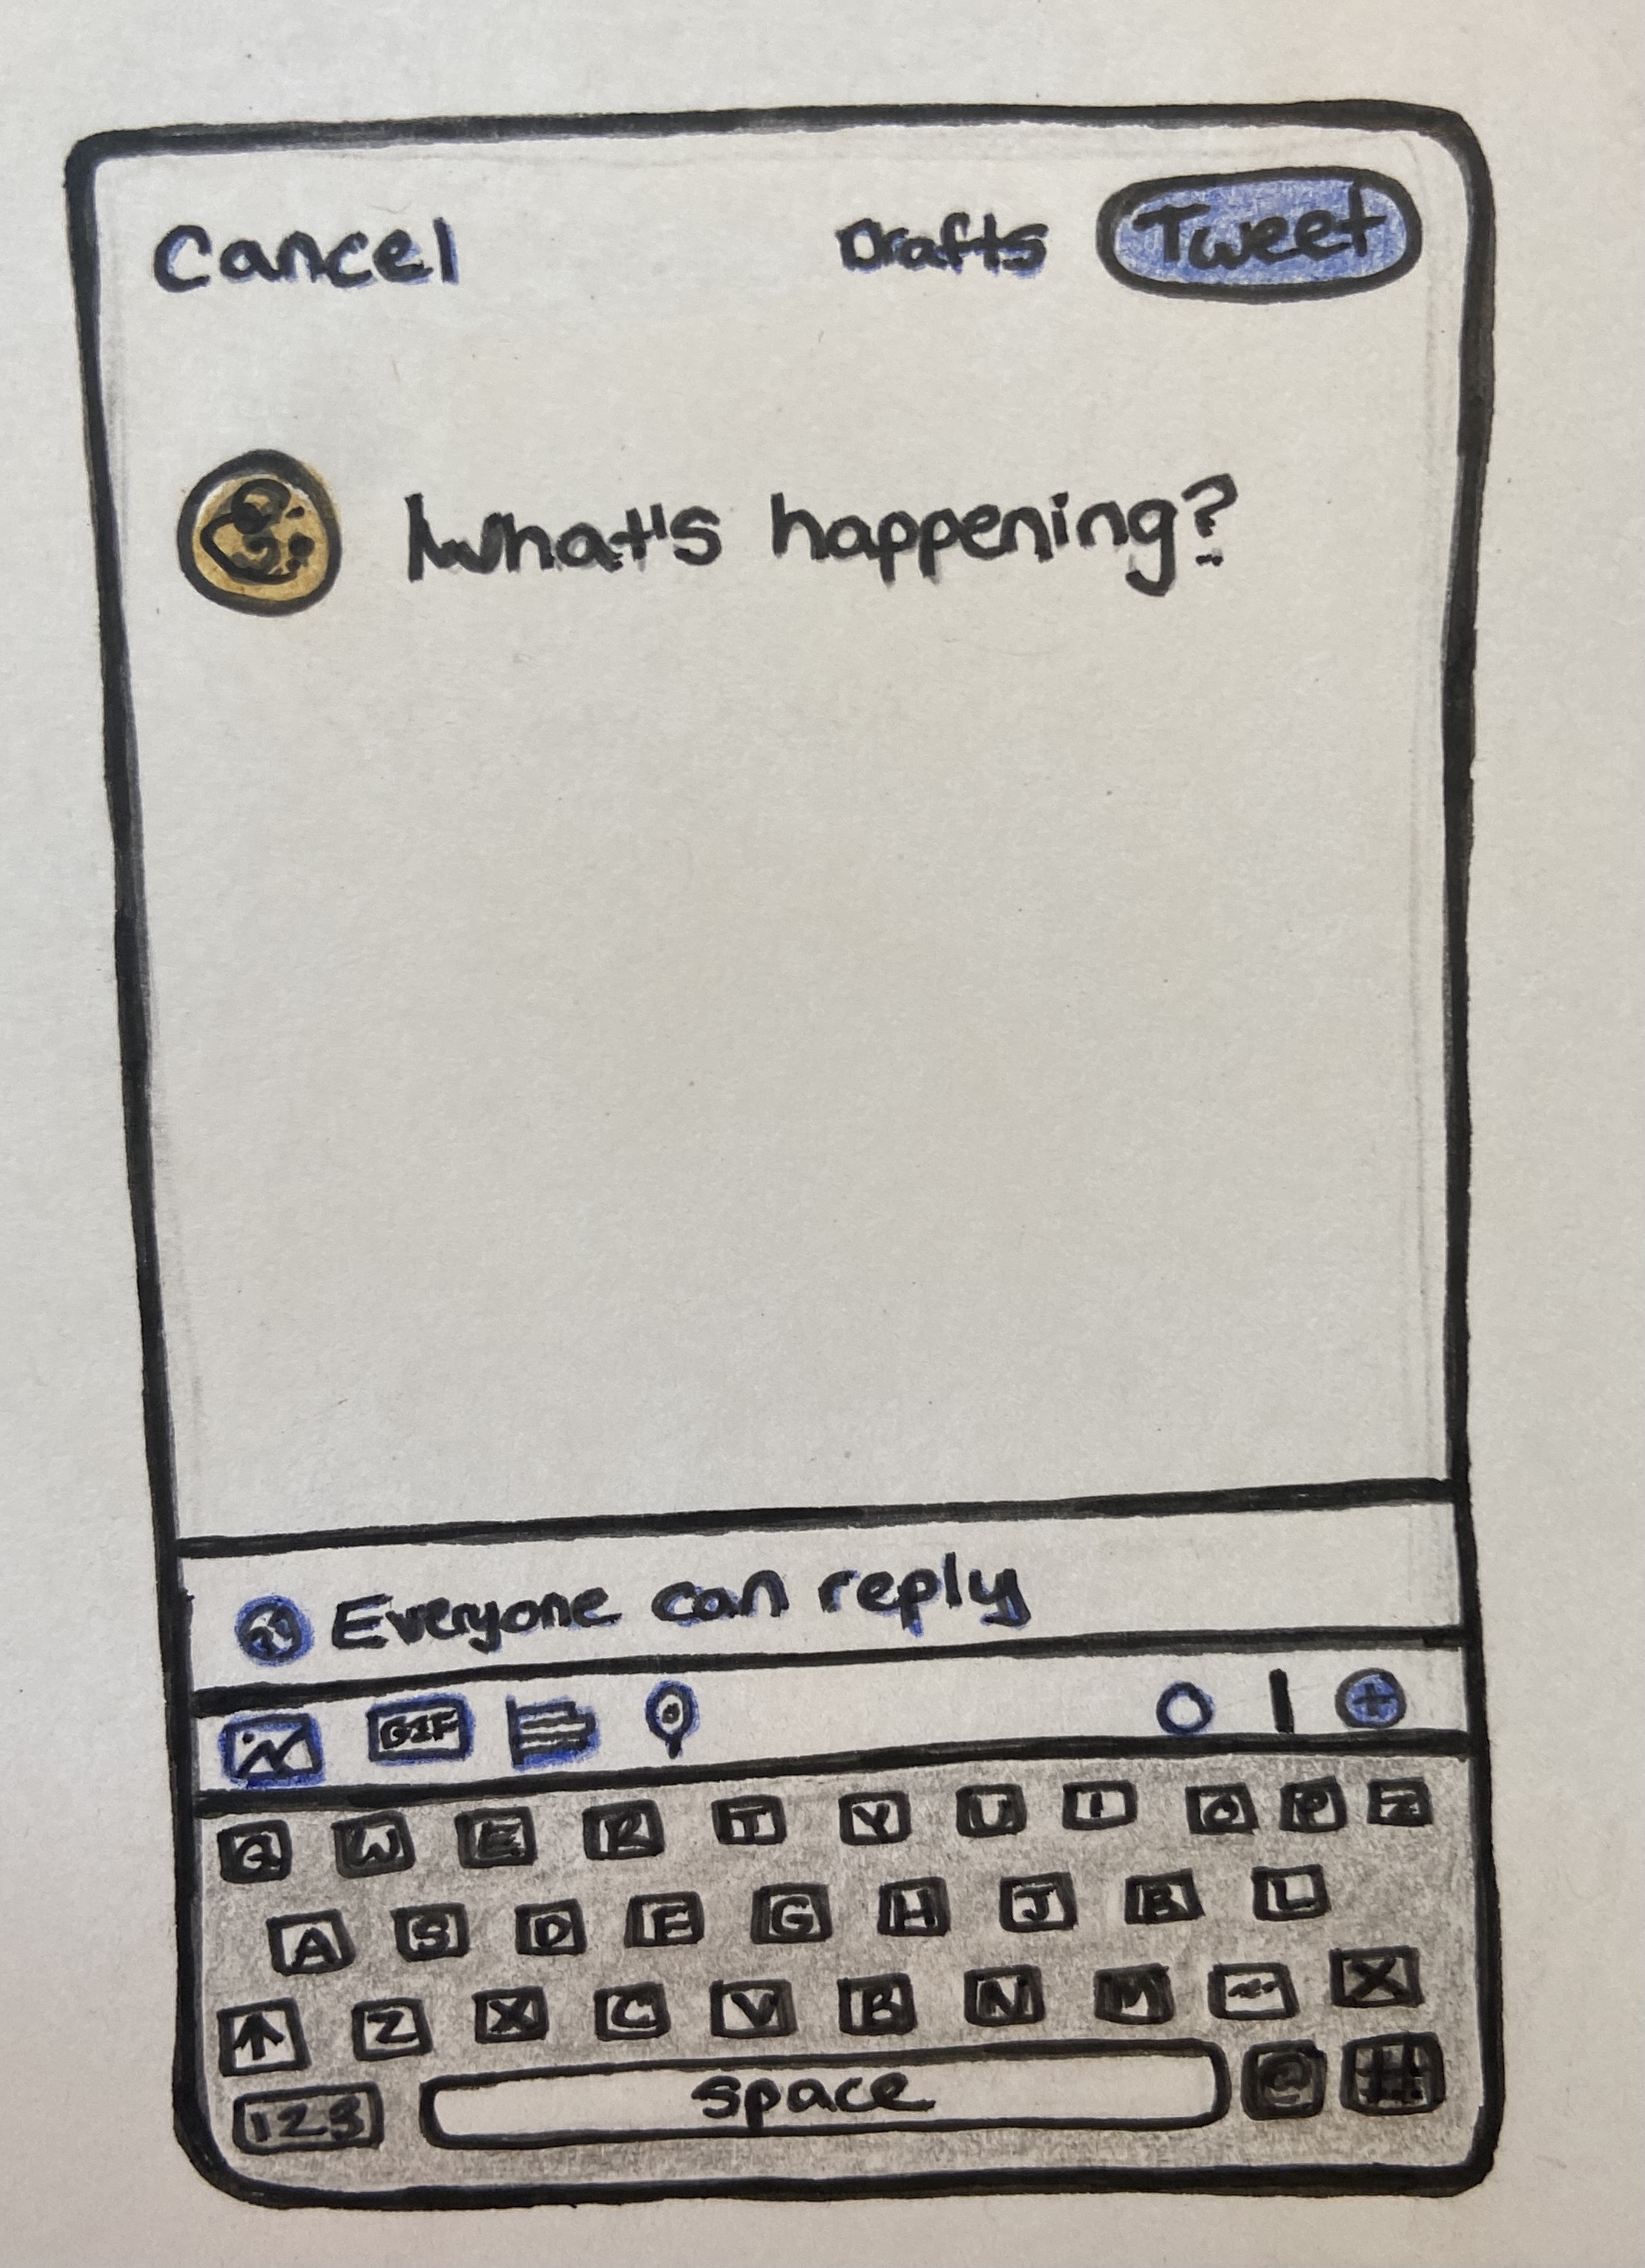 Cancel Drafts Tweet
What's happening?
Everyone can reply
GIF
Q W E R T Y U I O P
A S D F G H J L
Z X C V B N M X
123 space @ #